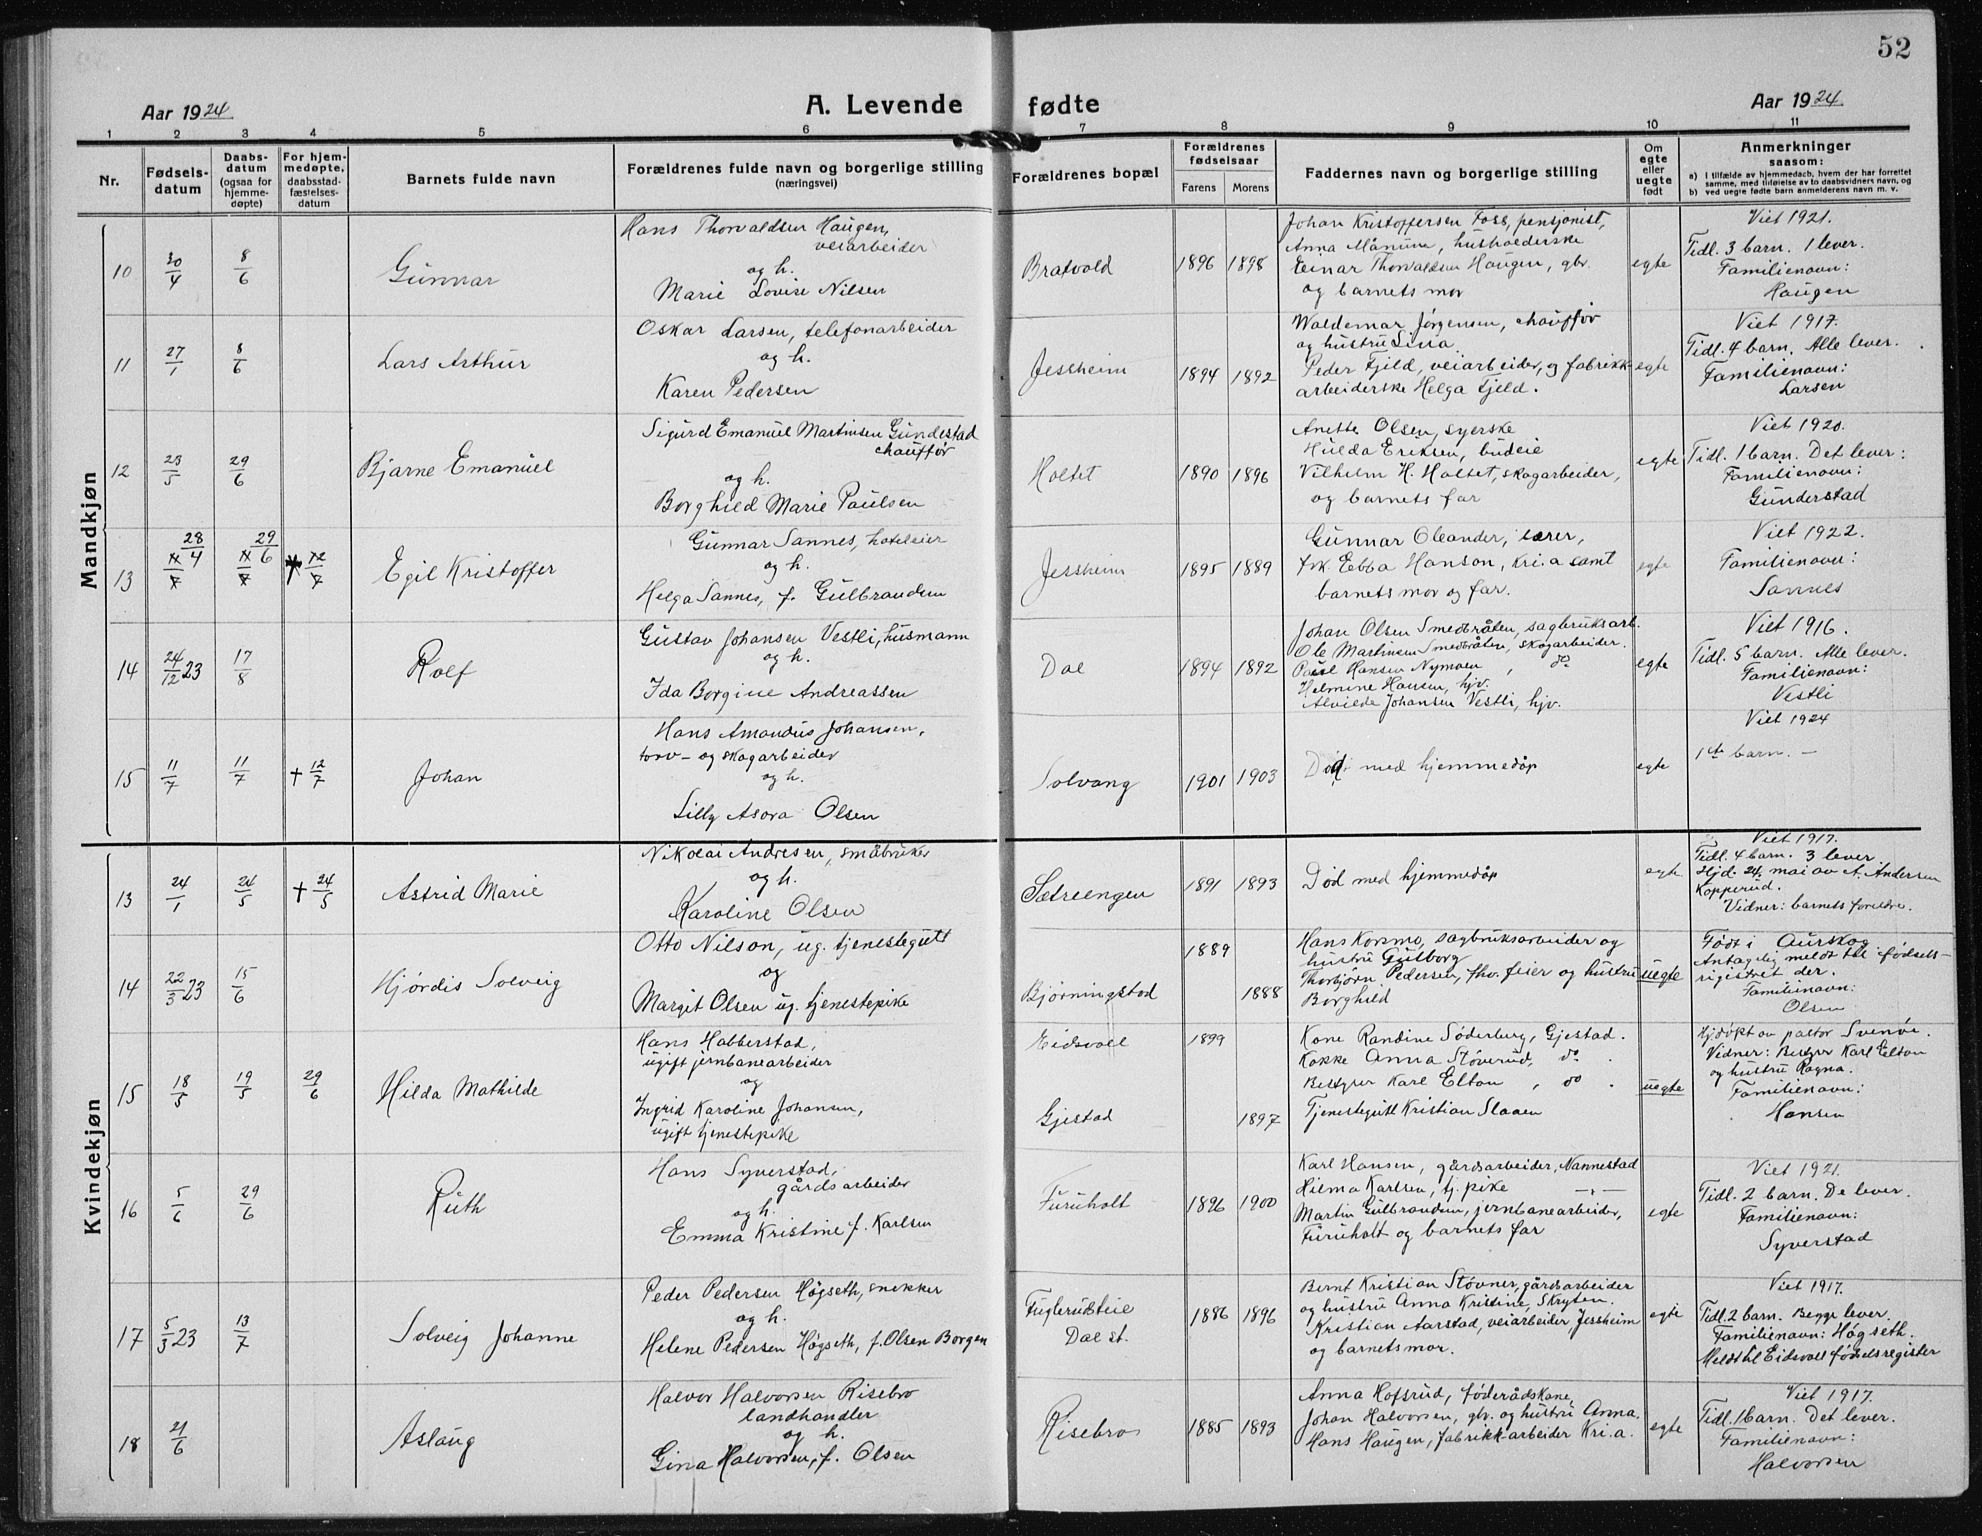 52
Aar 1924
A. Levende fødte
Aar 1924
1 2 3 4 5 6 7 8 9 10 11
Nr.
Fødsels-datum
Daabs-datum (ogsaa for hjemme-døpte)
For hjem-medøpte, daabsstad-fæstelses-datum
Barnets fulde navn
Forældrenes fulde navn og borgerlige stilling (næringsvei)
Forældrenes bopæl
Forældrenes fødselsaar
Farens Morens
Faddernes navn og borgerlige stilling
Om egte eller uegte født
Anmerkninger saasom:
a) I tilfælde av hjemmedaab, hvem der har forrettet samme, med tilføielse av to daabsvidners navn, og
b) ved uegte fødte barn anmelderens navn m. v.
Mandkjøn
10 30/4 8/6 Gunnar
Hans Thorvaldsen Haugen,
veiarbeider
og h.
Marie Lovise Nilsen
Bratvold 1896 1898
Johan Kristoffersen Foss, pensjonist,
Anna Månum, husholderske
Einar Thorvaldsen Haugen, gbr.
og barnets mor
egte
Viet 1921.
Tidl. 3 barn. 1 lever.
Familienavn:
Haugen
11 27/1 8/6 Lars Arthur
Oskar Larsen, telefonarbeider
og h.
Karen Pedersen
Jessheim 1894 1892
Waldemar Jørgensen, chauffør
og hustru Lina.
Peder Fjeld, veiarbeider, og fabrikk-
arbeiderske Helga Fjeld.
egte
Viet 1917.
Tidl. 4 barn. Alle lever.
Familienavn:
Larsen
12 23/5 29/6 Bjarne Emanuel
Sigurd Emanuel Martinsen Gunderstad
chauffør
og h.
Borghild Marie Paulsen
Holtet 1890 1896
Anette Olsen, syerske
Hulda Eriksen, budeie
Vilhelm H. Holtet, skogarbeider,
og barnets far
egte
Viet 1920.
Tidl. 1 barn. Det lever:
Familienavn:
Gunderstad
13 28/4 29/6 Egil Kristoffer
Gunnar Sannes, hoteleier
og h.
Helga Sannes, f. Gulbrandsen
Jessheim 1895 1889
Gunnar Oleander, lærer,
frk. Ebba Hanson, Kri.a samt
barnets mor og far.
egte
Viet 1922.
Familienavn:
Sannes
14 24/12 23 17/8 Rolf
Gustav Johansen Vestli, husmann
og h.
Ida Borgine Andreassen
Dal 1894 1892
Johan Olsen Smedbråten, sagbruksarb.
Ole Martinsen Smedbråten, skogarbeider.
Paul Hansen Nymoen, do
Helmine Hansen, hjv.
Alvilde Johansen Vestli, hjv.
egte
Viet 1916.
Tidl. 5 barn. Alle lever.
Familienavn:
Vestli
15 11/7 11/7 + 12/7 Johan
Hans Amandus Johansen,
torv- og skogarbeider
og h.
Lilly Asora Olsen
Solvang 1901 1903
Død med hjemmedåp
egte
Viet 1924
1ste barn. –
Kvindekjøn
13 24/1 24/5 + 24/5 Astrid Marie
Nikolai Andresen, småbruker
og h.
Karoline Olsen
Sætreengen 1891 1893
Død med hjemmedåp
egte
Viet 1917.
Tidl. 4 barn. 3 lever
Hjd. 24. mai av A. Andersen
Kopperud.
Vidner: barnets foreldre.
14 22/3 23 15/6 Hjørdis Solveig
Otto Nilson, ug. tjenestegutt
og
Margit Olsen ug. tjenestepike
Bjørningstad 1889 1888
Hans Korsmo, sagbruksarbeider og
hustru Gulborg
Thorbjørn Pedersen, fhv. feier og hustru
Borghild
uegte
Født i Aurskog
Antagelig meldt til fødsels-
rigistret der.
Familienavn:
Olsen
15 18/5 19/5 29/6 Hilda Mathilde
Hans Habberstad,
ugift jernbanearbeider
og
Ingrid Karoline Johansen,
ugift tjenestepike
Eidsvoll 1899
Gjestad 1897
Kone Randine Söderberg, Gjestad.
Kokke Anna Støverud, do.
Bestyrer Karl Elton, do.
Tjenestegutt Kristian Slaaen
uegte
Hj.døpt av pastor Svenøe.
Vidner: Bestyr Karl Elton
og hustru Ragna.
Familienavn:
Hansen
16 5/6 29/6 Ruth
Hans Syverstad,
gårdsarbeider
og h.
Emma Kristine f. Karlsen
Furuholt 1896 1900
Karl Hansen, gårdsarbeider, Nannestad
Hilma Karlsen, tj. pike –„–
Martin Gulbrandsen, jernbanearbeider,
Furuholt og barnets far
egte
Viet 1921.
Tidl. 2 barn. De lever.
Familienavn:
Syverstad
17 5/3 23 13/7 Solveig Johanne
Peder Pedersen Høgseth, snekker
og h.
Helene Pedersen Høgseth, f. Olsen Borgen
Fuglerudteie
Dal st. 1886 1896
Bernt Kristian Støvner, gårdsarbeider
og hustru Anna Kristine, Skryten.
Kristian Aarstad, veiarbeider Jessheim
og barnets mor.
egte
Viet 1917.
Tidl. 2 barn. Begge lever.
Familienavn: Høgseth.
Meldt til Eidsvoll fødselsregister
18 21/6 Aslaug
Halvor Halvorsen Risebro
landhandler
og h.
Gina Halvorsen, f. Olsen
Risebro 1885 1893
Anna Hofsrud, føderådskone,
Johan Halvorsen, gbr. og hustru Anna.
Hans Haugen, fabrikk-arbeider Kri.a.
egte
Viet 1917.
Tidl. 1 barn. Det lever.
Familienavn:
Halvorsen